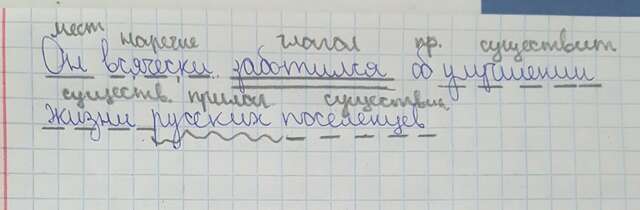 мест наречие глагол пр. существит
Он всячески заботился об улучшении
существ. прилаг существит.
жизни русских поселенцев